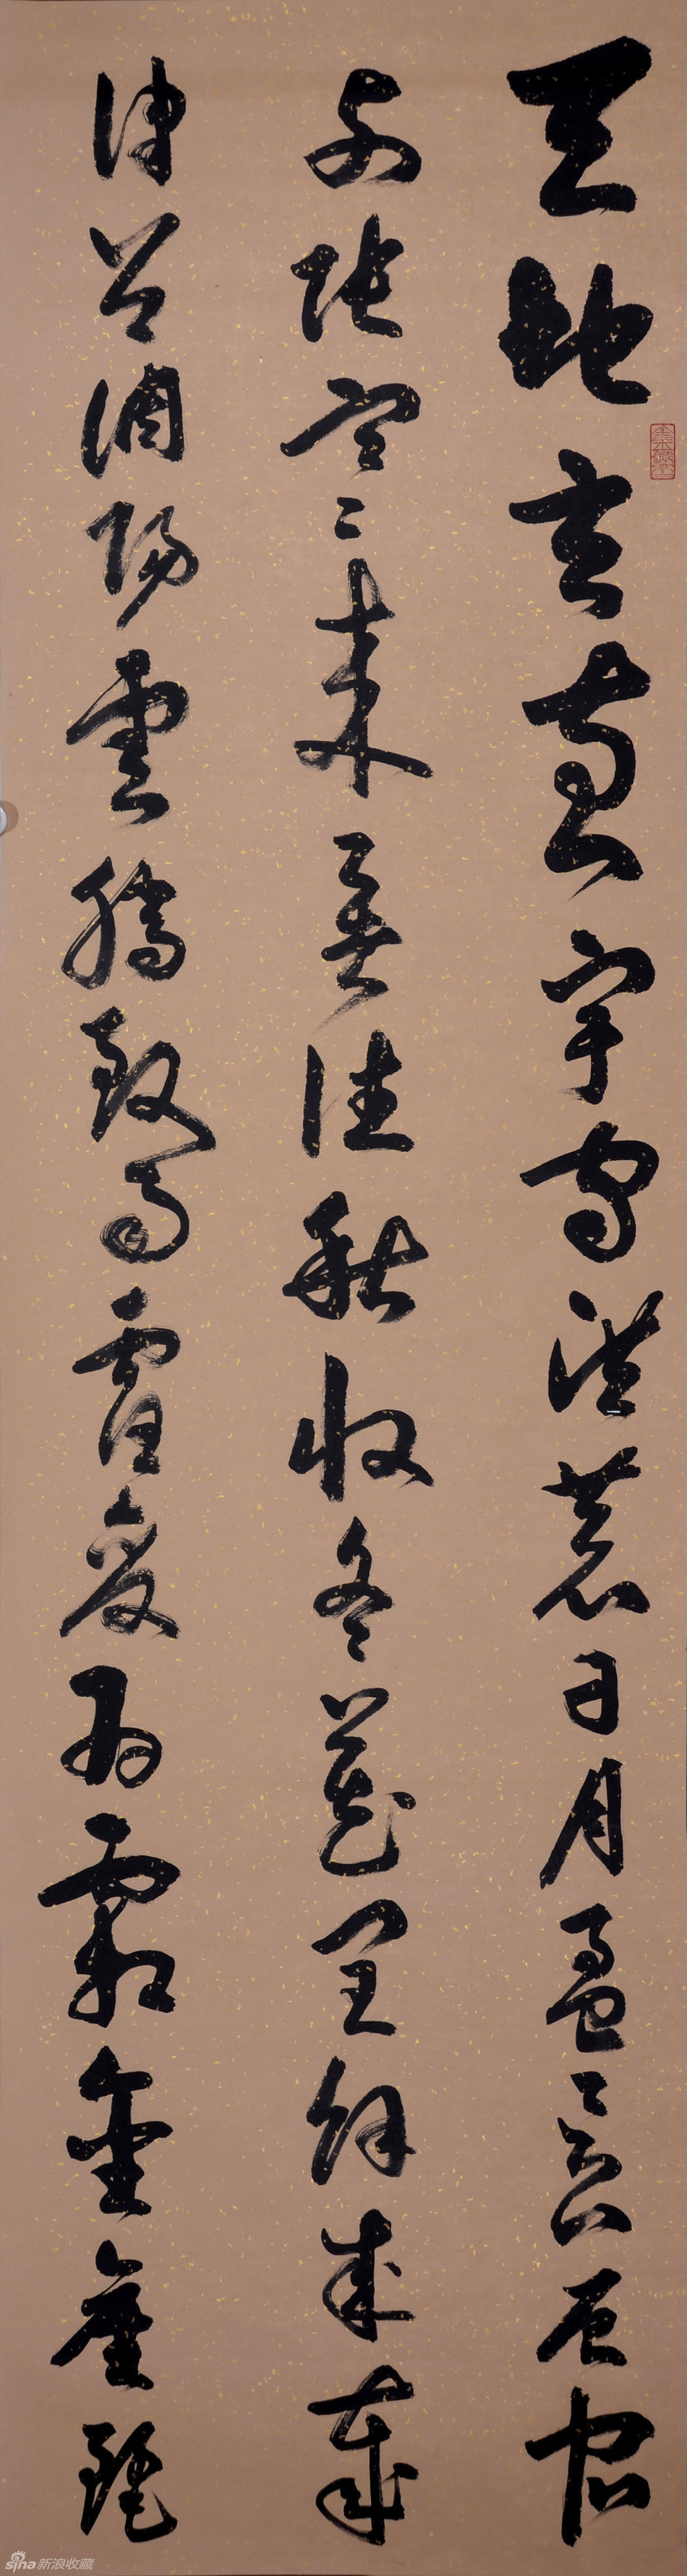 天地玄黄宇宙洪荒日月盈昃辰宿
列张寒〻来暑往秋收冬藏闰余成岁
律吕调阳云腾致雨露结为霜金生丽
sina新浪收藏